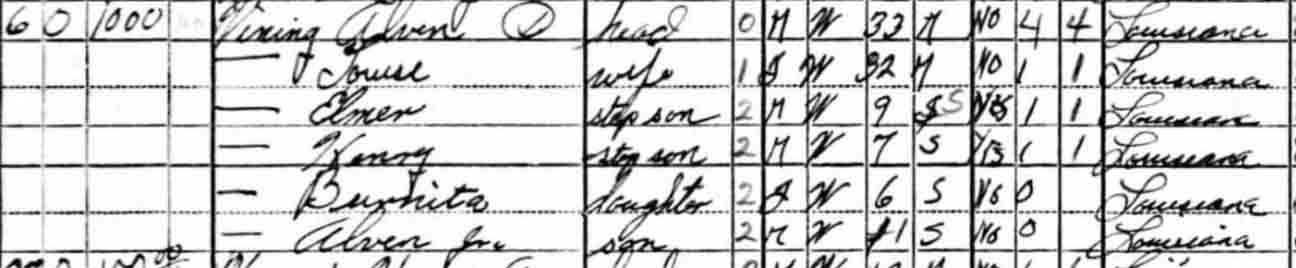 6 0 1000 Vining Alven head 0 M W 33 M No 4 4 Louisiana
— Louise wife 1 F W 32 M No 1 1 Louisiana
— Elmer step son 2 M W 9 S S 1 1 Louisiana
— Henry step son 2 M W 7 S Yes 1 1 Louisiana
— Burnita daughter 2 F W 6 S No 0 Louisiana
— Alven Jr. son 2 M W 1 S No 0 Louisiana